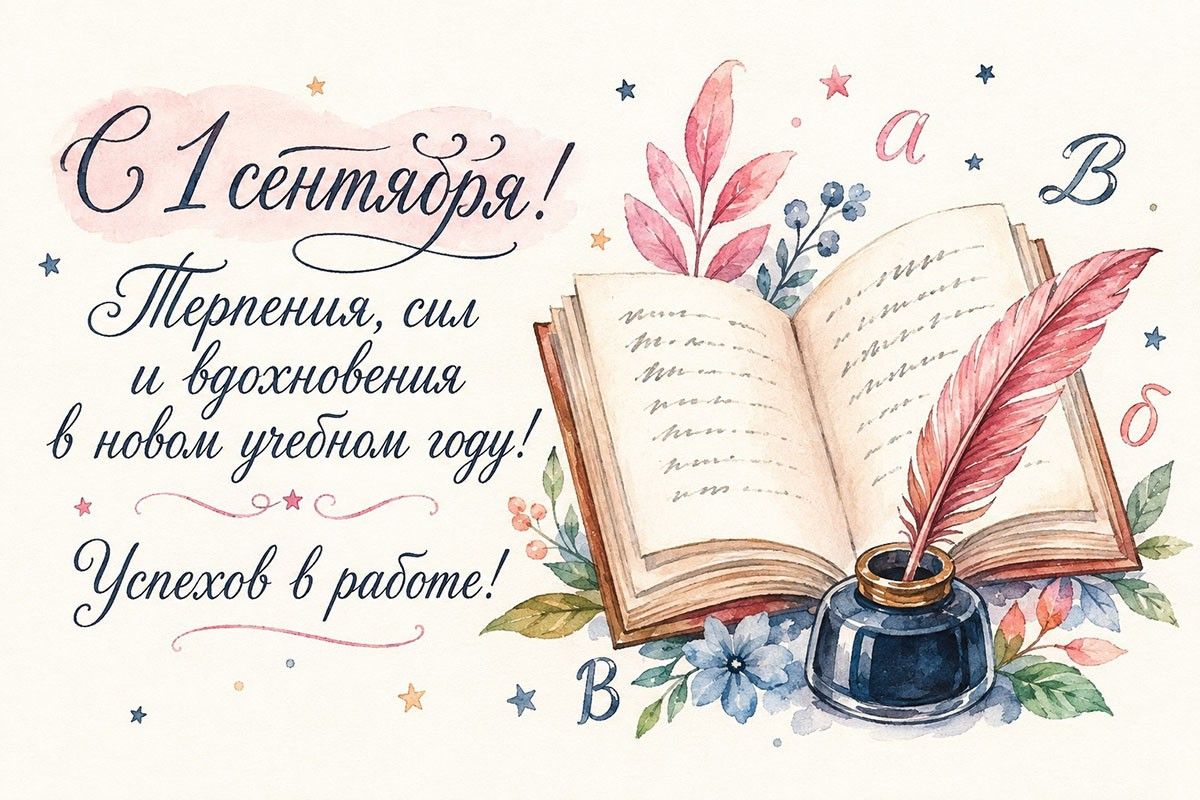 С 1 сентября!
Терпения, сил
и вдохновения
в новом учебном году!
Успехов в работе!
а
В
б
В